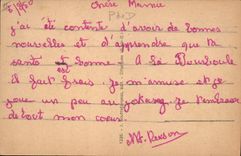 Chère Mamie
j'ai été contente d'avoir de bonnes
nouvelles et d'apprendre que ta
santé est bonne. A la Bourboule
il fait frais je m'amuse et je
joue un peu au jokari je t'embrasse
de tout mon cœur